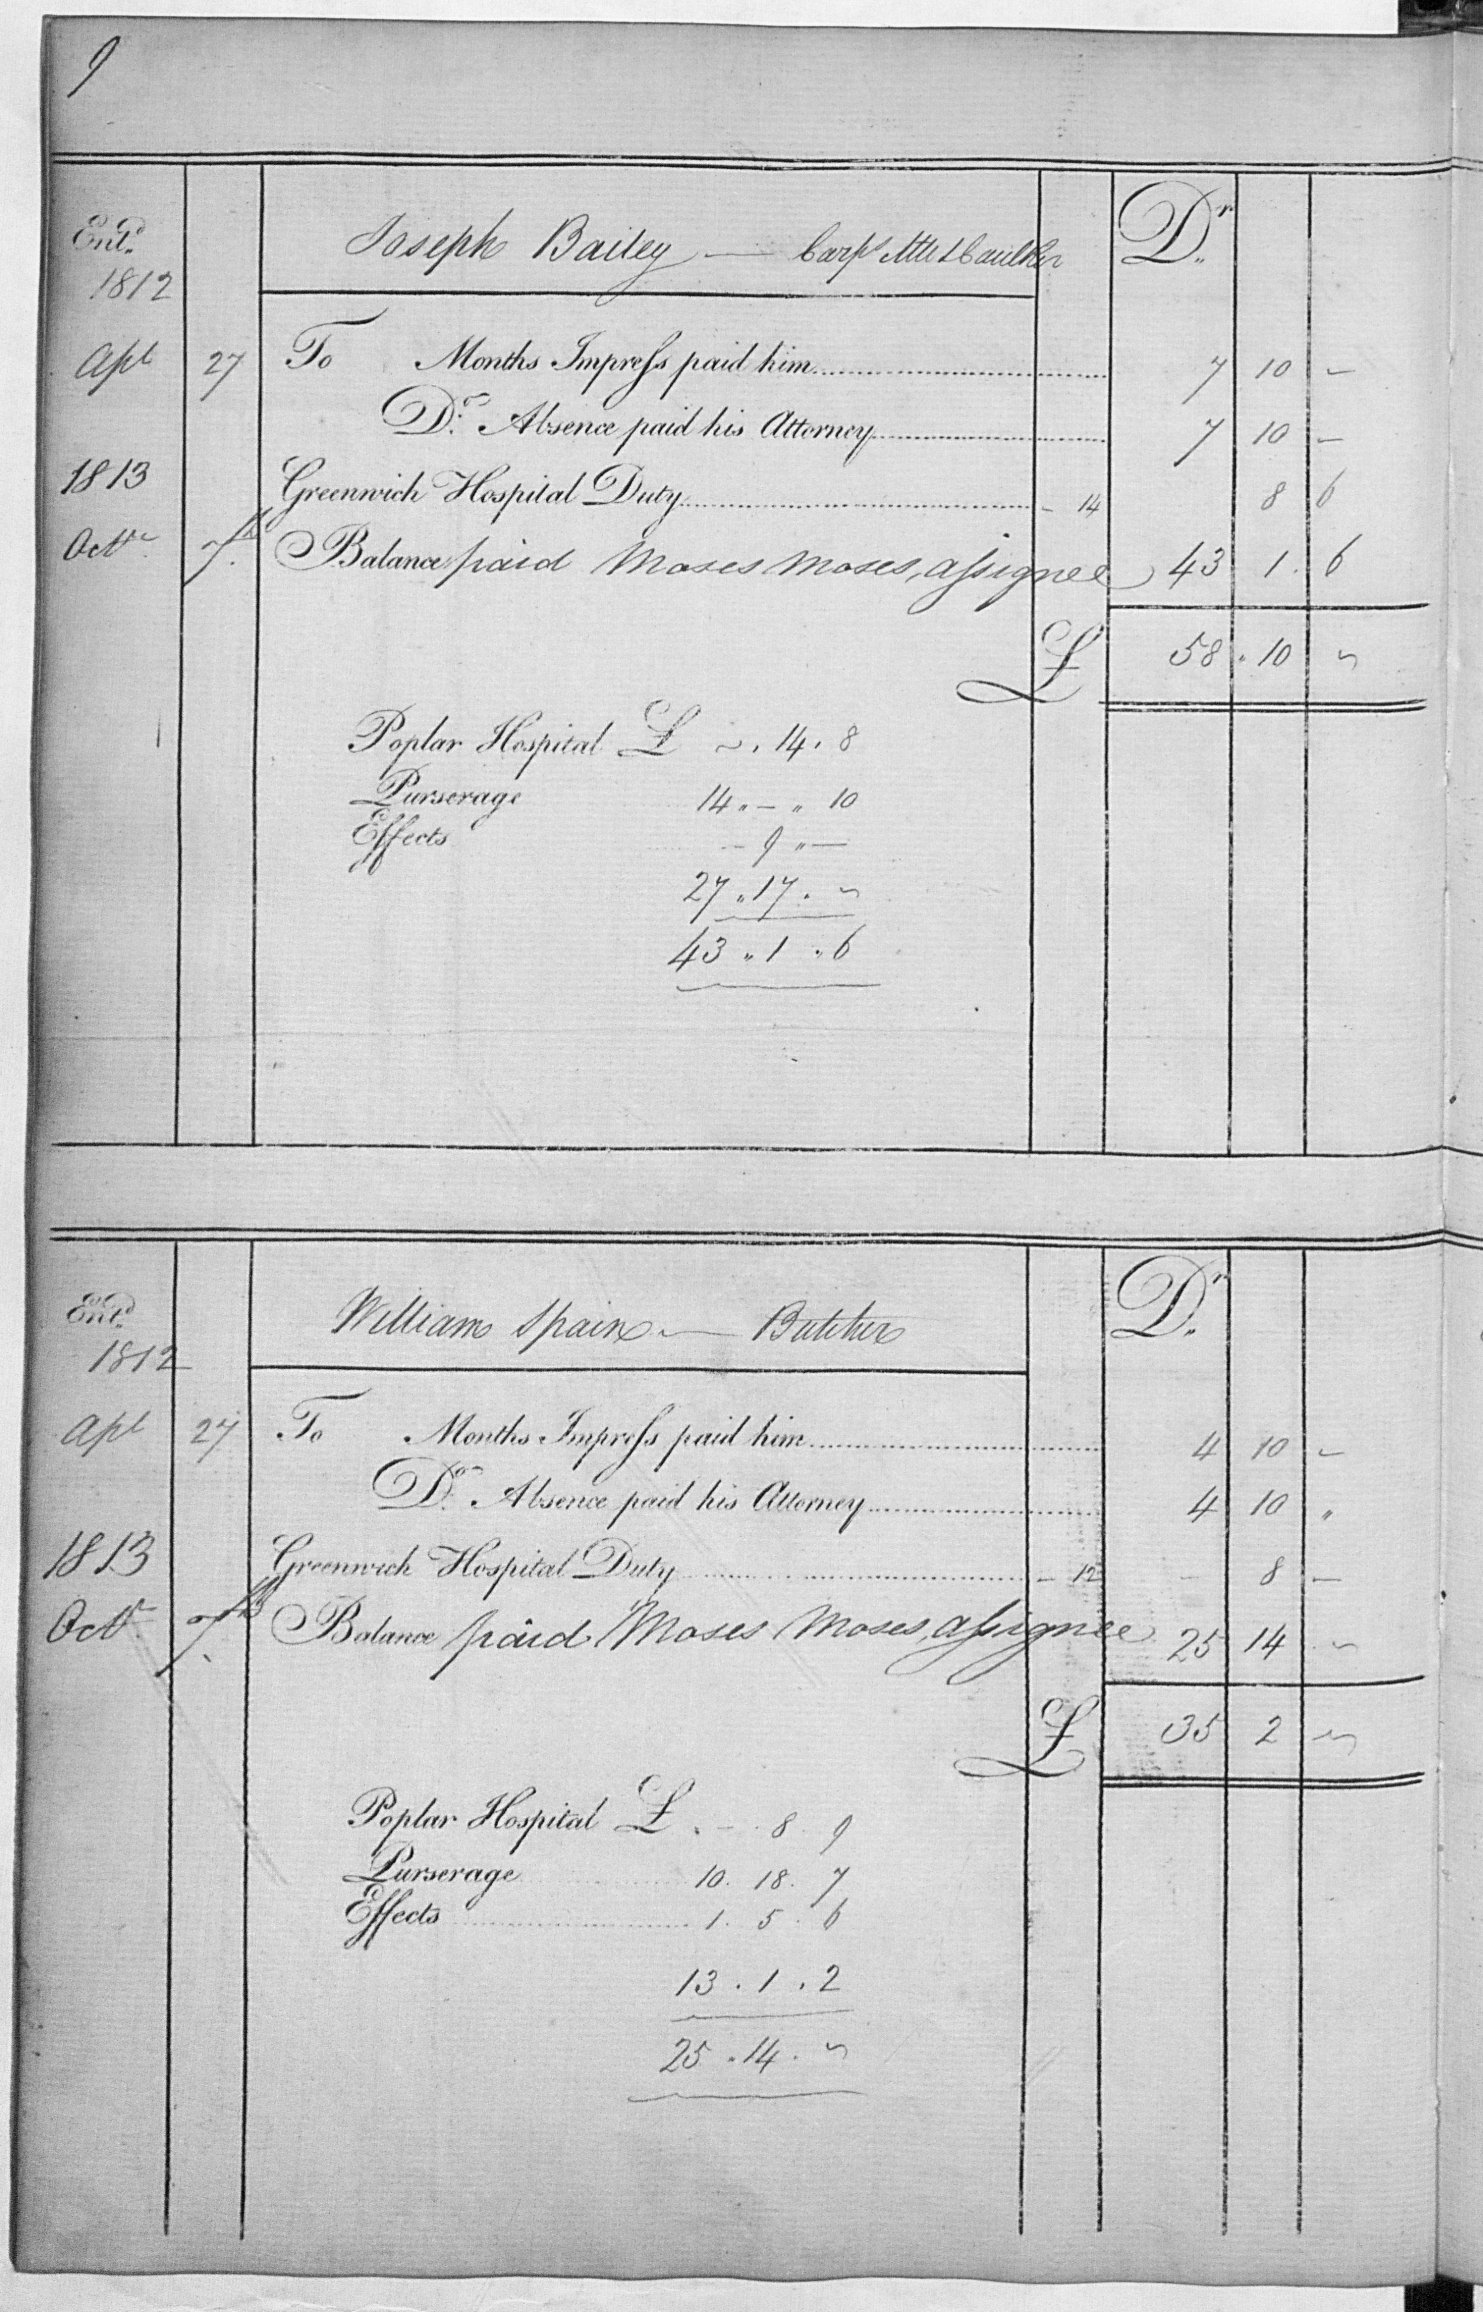 9
Entd Joseph Bailey — Carpr Mte & Caulker Dr
1812
Apl 27 To Months Impress paid him 7 10 –
Do. Absence paid his Attorney 7 10 –
1813
Greenwich Hospital Duty – 14 8 6
Octr 7th Balance paid Moses Moses, assignee 43 1 6
£ 58 . 10 ~
Poplar Hospital £ ~ . 14 . 8
Purserage 14 „ – „ 10
Effects – 9 „ –
27 „ 17 . ~
43 „ 1 „ 6
Entd William Spain — Butcher Dr
1812
Apl 27 To Months Impress paid him 4 10 –
Do. Absence paid his Attorney 4 10 „
1813
Greenwich Hospital Duty – 12 – 8 –
Octr 7th Balance paid Moses Moses, assignee 25 14 ~
£ 35 2 ~
Poplar Hospital £ . – 8 . 9
Purserage 10 . 18 . 7
Effects 1 . 5 . 6
13 . 1 . 2
25 . 14 . ~